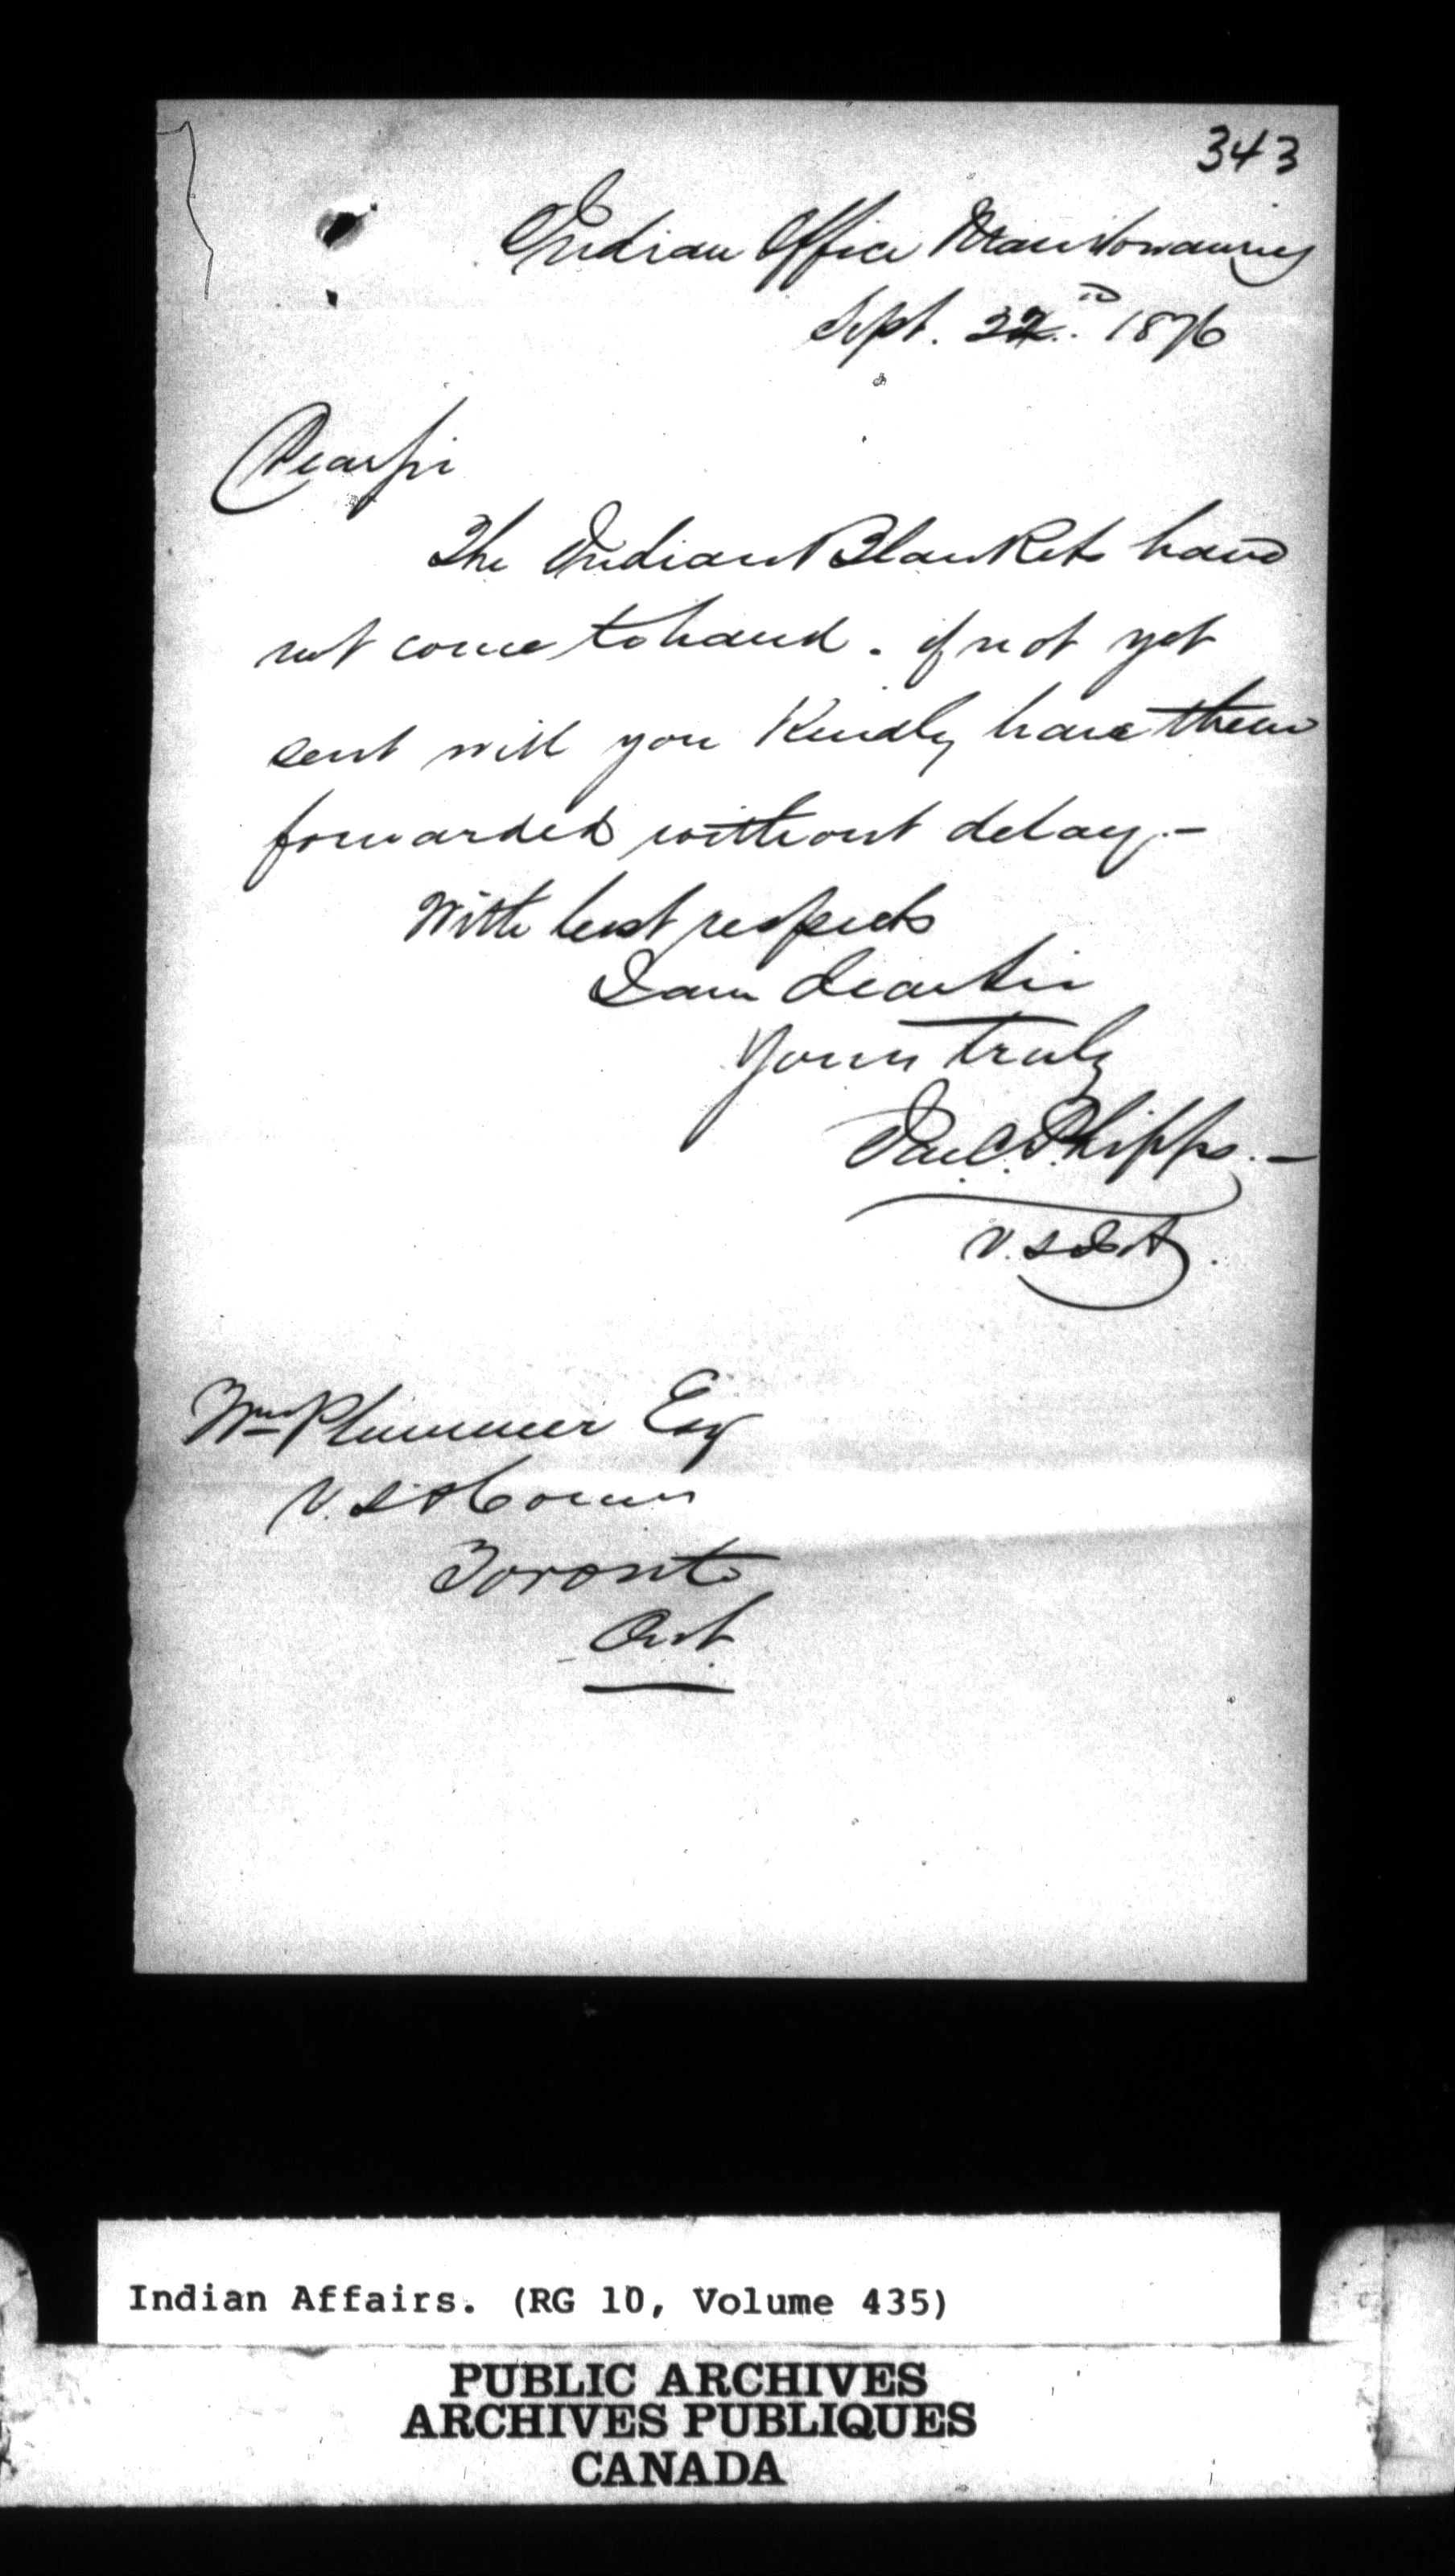 343
Indian Office Manitowaning
Sept. 22nd 1876
Dear Sir
The Indian Blankets have
not come to hand. if not yet
sent will you Kindly have them
forwarded without delay.-
With best respects
I am dear Sir
Yours truly
Jas. C. Phipps.-
V. S. I. A.
Wm Plummer Esq
V. S. I. Comr
Toronto
Ont.
Indian Affairs. (RG 10, Volume 435)
PUBLIC ARCHIVES
ARCHIVES PUBLIQUES
CANADA